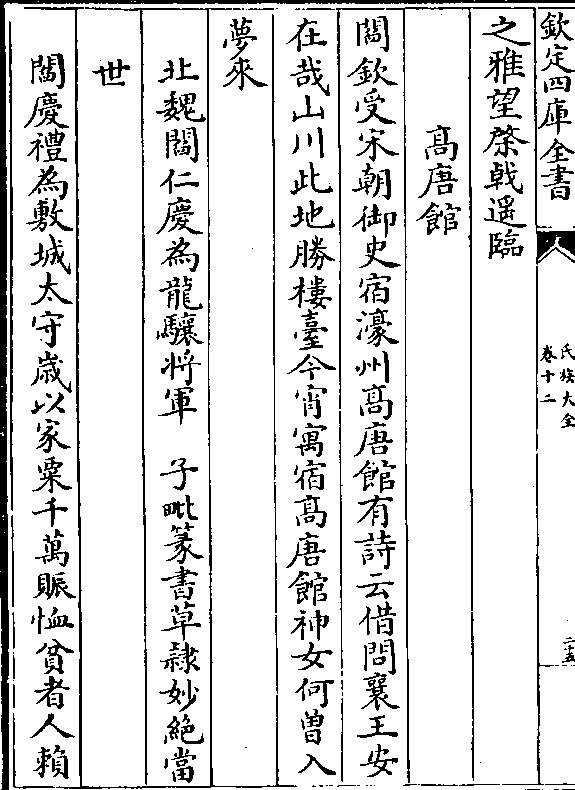 欽定四庫全書
氏族大全
卷十二
二十五
之雅望棨㦸遥臨
髙唐館
閻欽受宋朝御史宿濠州髙唐館有詩云借問襄王安
在哉山川此地勝樓臺今宵寓宿髙唐館神女何曽入
夢來
北魏閻仁慶為龍驤將軍 子毗篆書草隷妙絶當
世
閻慶禮為敷城太守歳以家粟千萬賑恤貧者人賴